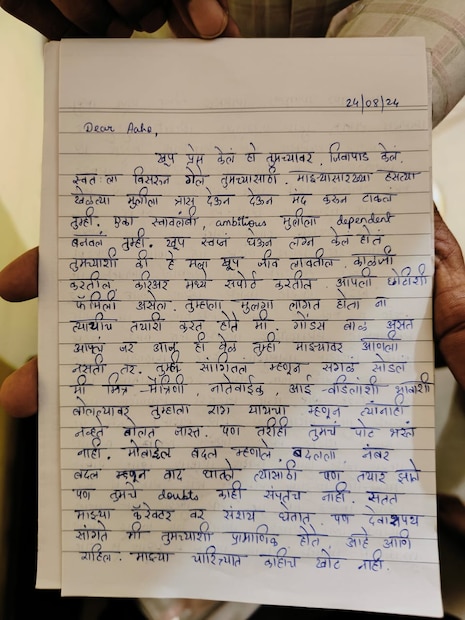 24/08/24
Dear Aaho,
खूप प्रेम केलं हो तुमच्यावर, जिवापाड केलं.
स्वतःला विसरून गेले तुमच्यासाठी. माझ्यासारख्या हसत्या
खेळत्या मुलीला त्रास देऊन देऊन मंद करून टाकलं
तुम्ही. एका स्वावलंबी, ambitious मुलीला dependent
बनवलं तुम्ही. खूप स्वप्नं घेऊन लग्न केलं होतं
तुमच्याशी की हे मला खूप जीव लावतील, काळजी
करतील, करिअर मध्ये सपोर्ट करतील. आपली छोटीशी
फॅमिली असेल. तुम्हाला मुलगा लागत होता ना
त्याचीच तयारी करत होते मी. गोंडस बाळ असतं
आपलं जर आज ही वेळ तुम्ही माझ्यावर आणली
नसती तर. तुम्ही सांगितलं म्हणून सगळं सोडलं
मी मित्र-मैत्रिणी, नातेवाईक, आई-वडीलांशी भावाशी
बोलल्यावर तुम्हाला राग यायचा म्हणून त्यांनाही
नव्हते बोलत जास्त. पण तरीही तुमचं पोट भरलं
नाही. मोबाईल बदल म्हणाले, बदलला. नंबर
बदल म्हणून वाद घातले त्यासाठी पण तयार झाले
पण तुमचे doubts काही संपतच नाही. सतत
माझ्या कॅरेक्टर वर संशय घेतात. पण देवाशपथ
सांगते मी तुमच्याशी प्रामाणिक होते आहे आणि
राहिल. माझ्या चारित्र्यात काहीच खोट नाही.